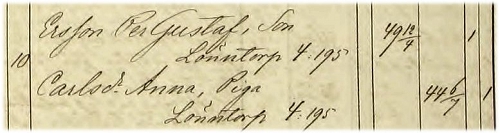 Ersson Per Gustaf, Son 49 12/4 1
Lönntorp 4:195
10
Carlsdr. Anna, Piga 44 6/7 1
Lönntorp 4:195